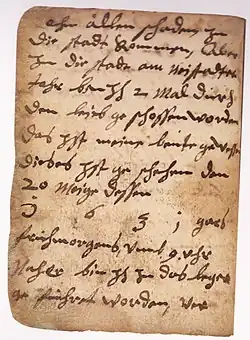 ohn allen schaden, in
die stadt kommen, Aber
in die stadt am Neistedter
tahr ben ih 2 mal durch
den leib ge schossen worden
das ist meine beute gewesen
dieses ist ge schehen den
20 Meige dessen
1 6 3 1 gars
frühmorgens, vmb 9. vhr
Naher bin ih in das leger
ge führet worden, ver